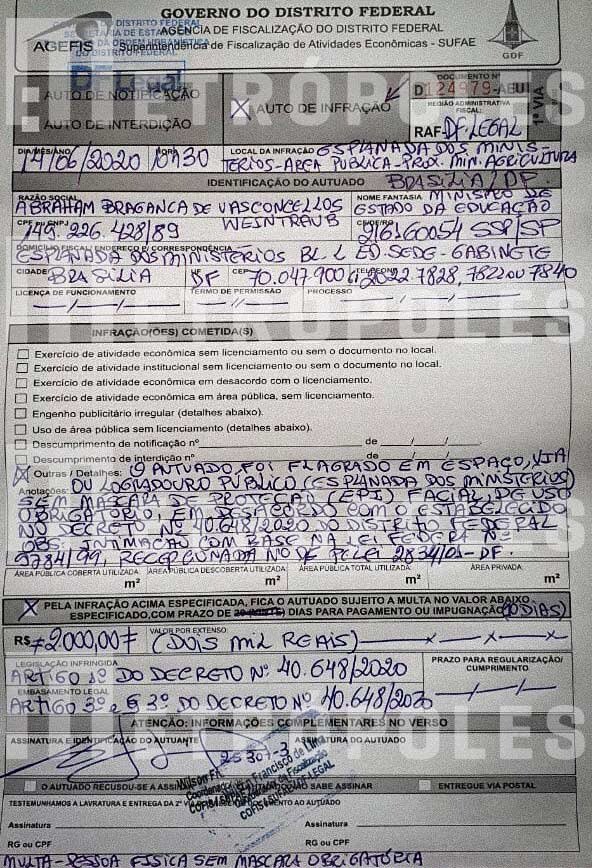 GOVERNO DO DISTRITO FEDERAL
AGÊNCIA DE FISCALIZAÇÃO DO DISTRITO FEDERAL
Superintendência de Fiscalização de Atividades Econômicas - SUFAE
AGEFIS
GDF
DF Legal
AUTO DE NOTIFICAÇÃO
AUTO DE INTERDIÇÃO
X AUTO DE INFRAÇÃO
DOCUMENTO Nº
D124979-AEU
REGIÃO ADMINISTRATIVA FISCAL:
RAF-DF LEGAL
1ª VIA
DIA/MÊS/ANO
14/06/2020
HORA
LOCAL DA INFRAÇÃO
ESPLANADA DOS MINIS-
TÉRIOS-AREA PUBLICA-PROX. MIN. AGRICULTURA
IDENTIFICAÇÃO DO AUTUADO
BRASILIA/DF.
RAZÃO SOCIAL
ABRAHAM BRAGANCA DE VASCONCELLOS
WEINTRAUB
NOME FANTASIA
MINISTRO DE
ESTADO DA EDUCAÇÃO
CPF - CNPJ
149.226.428/89
CF/DF/RG
216160054 SSP/SP
DOMICÍLIO FISCAL/ ENDEREÇO P/ CORRESPONDÊNCIA
ESPLANADA DOS MINISTÉRIOS BL. L ED. SEDE - GABINETE
CIDADE
BRASILIA
UF
DF
CEP
70.047.900
TELEFONE
2022.7828, 7822 ou 7840
LICENÇA DE FUNCIONAMENTO
TERMO DE PERMISSÃO
PROCESSO
INFRAÇÃO(ÕES) COMETIDA(S)
Exercício de atividade econômica sem licenciamento ou sem o documento no local.
Exercício de atividade institucional sem licenciamento ou sem o documento no local.
Exercício de atividade econômica em desacordo com o licenciamento.
Exercício de atividade econômica em área pública, sem licenciamento.
Engenho publicitário irregular (detalhes abaixo).
Uso de área pública sem licenciamento (detalhes abaixo).
Descumprimento de notificação nº de / /
Descumprimento de interdição nº de / /
X Outras / Detalhes: O AUTUADO, FOI FLAGRADO EM ESPAÇO, VIA
Anotações: OU LOGRADOURO PUBLICO (ESPLANADA DOS MINISTERIOS)
SEM MASCARA DE PROTEÇÃO (EPI) FACIAL, DE USO
OBRIGATÓRIO, EM DESACORDO COM O ESTABELECIDO
NO DECRETO Nº 40.648/2020 DO DISTRITO FEDERAL
OBS: INTIMAÇÃO COM BASE NA LEI FEDERAL Nº
9784/99, RECEPCIONADA NO DF PELEI 2834/01-DF.
ÁREA PÚBLICA COBERTA UTILIZADA m²
ÁREA PÚBLICA DESCOBERTA UTILIZADA m²
ÁREA PÚBLICA TOTAL UTILIZADA m²
ÁREA PRIVADA m²
X PELA INFRAÇÃO ACIMA ESPECIFICADA, FICA O AUTUADO SUJEITO A MULTA NO VALOR ABAIXO
ESPECIFICADO,COM PRAZO DE DIAS PARA PAGAMENTO OU IMPUGNAÇÃO (10 DIAS)
R$ 2000,00
VALOR POR EXTENSO
(DOIS MIL REAIS)
LEGISLAÇÃO INFRINGIDA
ARTIGO 1º DO DECRETO Nº 40.648/2020
PRAZO PARA REGULARIZAÇÃO/ CUMPRIMENTO
EMBASAMENTO LEGAL
ARTIGO 3º e § 3º DO DECRETO Nº 40.648/2020
ATENÇÃO: INFORMAÇÕES COMPLEMENTARES NO VERSO
ASSINATURA E IDENTIFICAÇÃO DO AUTUANTE
ASSINATURA DO AUTUADO
O AUTUADO RECUSOU-SE A ASSINAR
SABE ASSINAR
ENTREGUE VIA POSTAL
TESTEMUNHAMOS A LAVRATURA E ENTREGA DA 2ª VIA
AO AUTUADO
Assinatura
Assinatura
RG ou CPF
RG ou CPF
MULTA - PESSOA FISICA SEM MASCARA OBRIGATÓRIA
METRÓPOLES